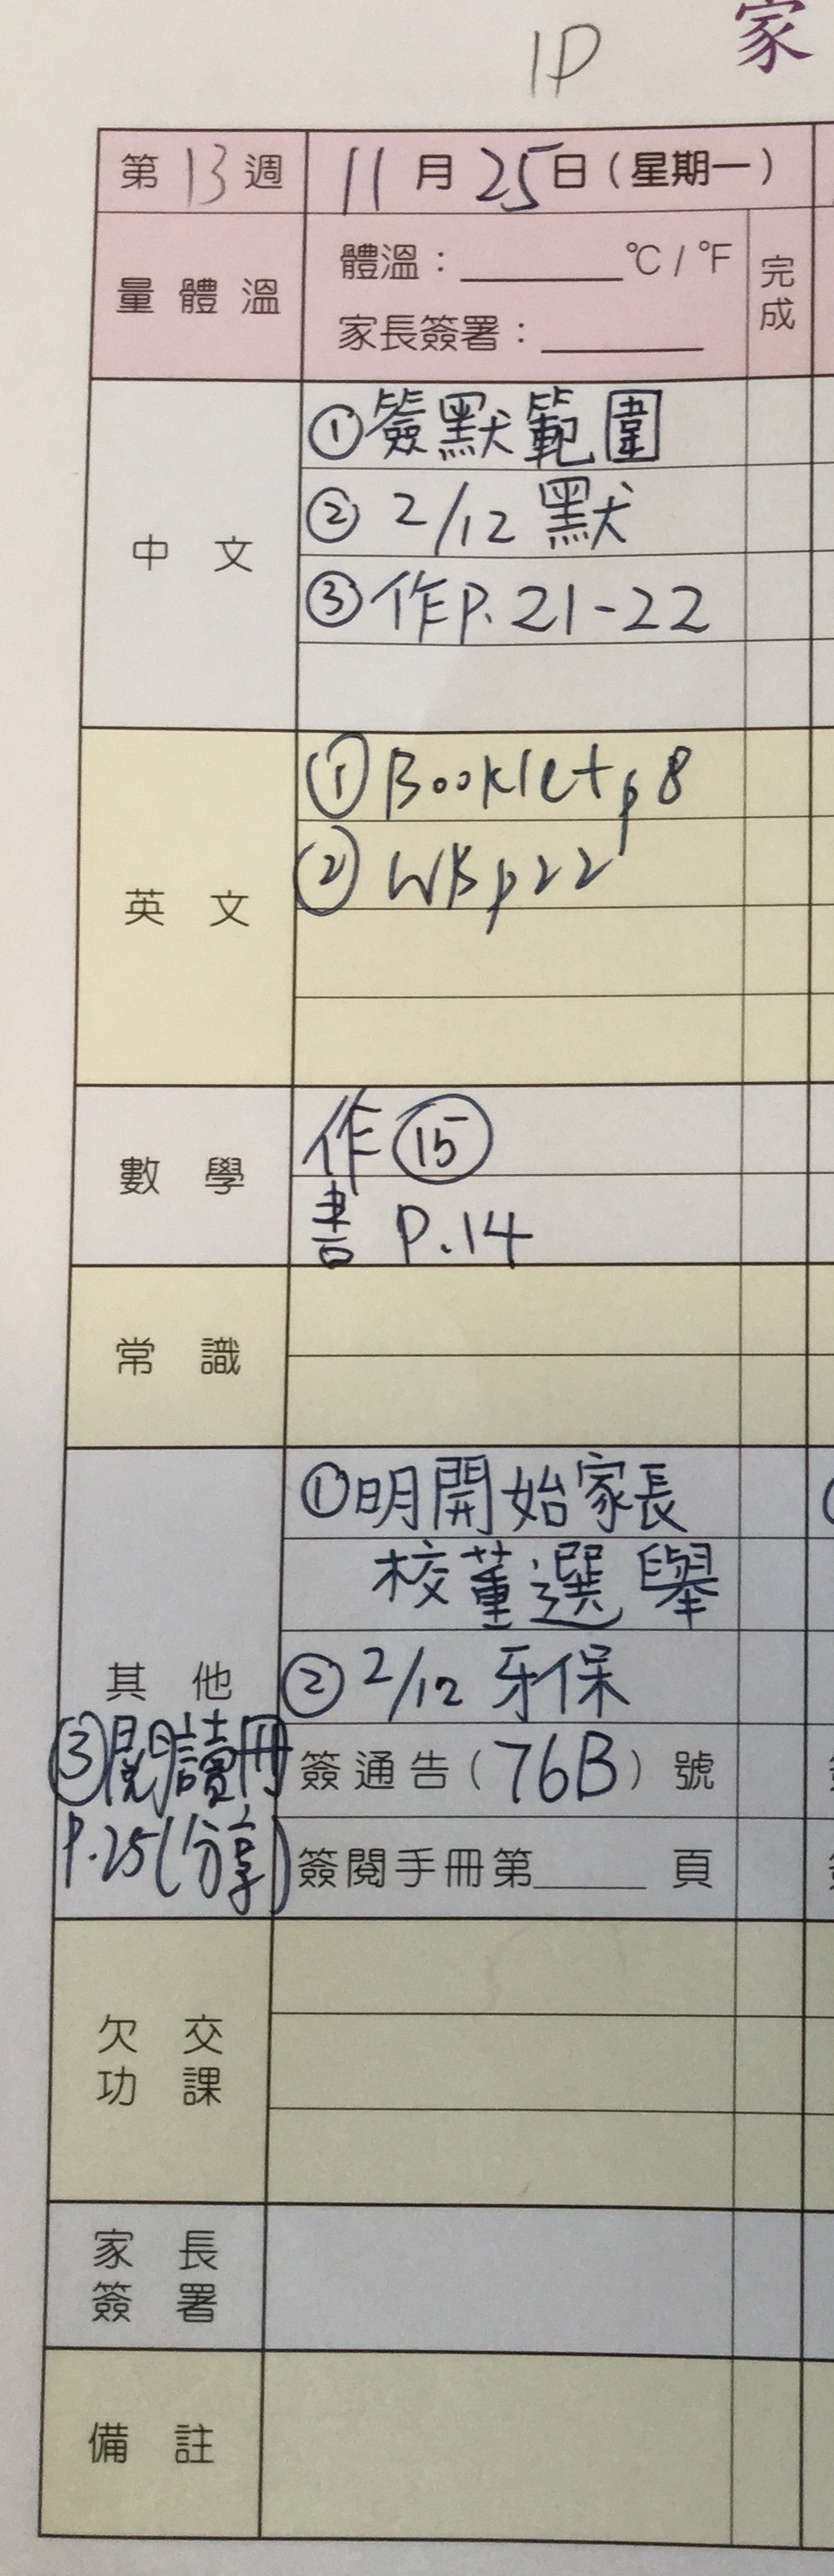 1D
家
第13週 11月25日(星期一)
量體溫
體溫：______°C/°F
家長簽署：______
完成
中文
①簽默範圍
② 2/12 默
③作P.21-22
英文
①Booklet p8
② WB p22
數學
作⑮
書 P.14
常識
其他
①明開始家長
校董選舉
② 2/12 牙保
③閱讀冊
P.25(分享)
簽通告(76B)號
簽閱手冊第____頁
欠交
功課
家長
簽署
備註